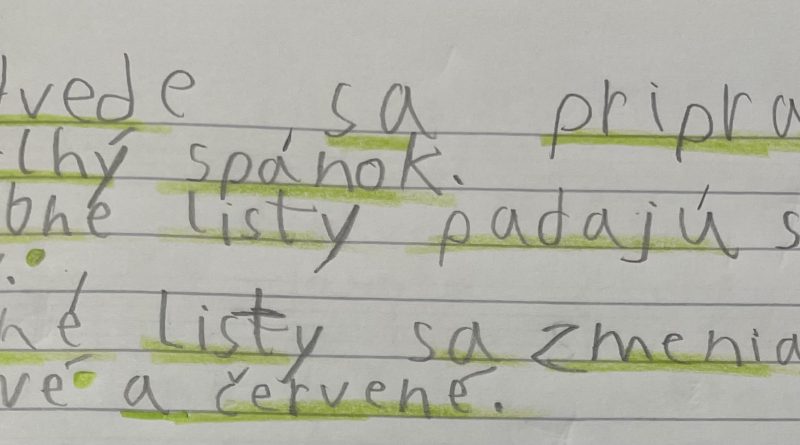 dvede sa pripra
lhý spánok.
bné listy padajú s
.
né listy sa zmenia
vé a červené.